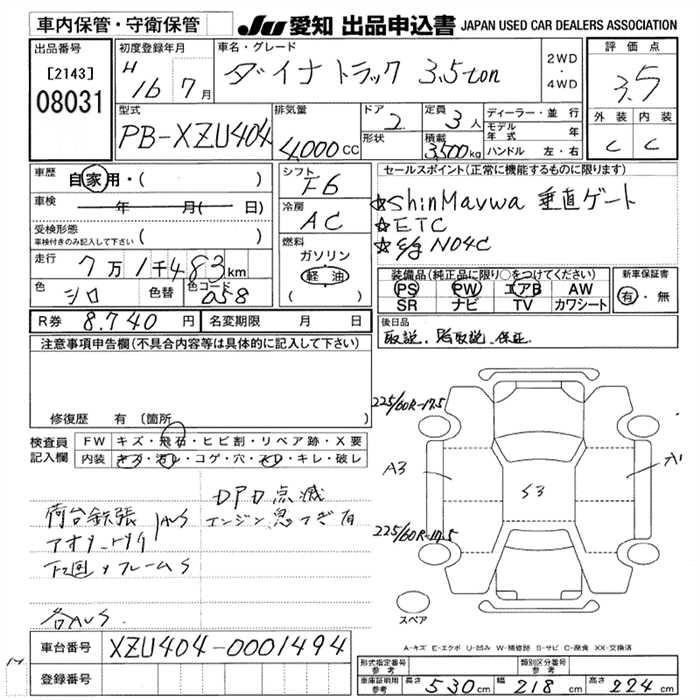 車内保管・守衛保管
JU 愛知 出品申込書 JAPAN USED CAR DEALERS ASSOCIATION
出品番号
[2143]
08031
初度登録年月
H 16 7月
車名・グレード
ダイナトラック 3.5ton
2WD
・
4WD
評価点
3.5
外装 内装
C C
型式
PB-XZU404
排気量
4,000CC
ドア 2
形状
定員 3人
積載 3,500kg
ディーラー・並行
モデル年式 年
ハンドル 左・右
車歴 自家用・( )
車検 年 月( 日)
受検形態
車検付きのみ記入して下さい ( )
走行 7万1千483km
色 シロ 色替 色コード 058
シフト F6
冷房 AC
燃料
ガソリン
軽油
( )
セールスポイント(正常に機能するものに限ります)
☆ShinMaywa 垂直ゲート
☆ETC
☆E/g N04C
装備品(純正品に限り○をつけてください)
PS PW エアB AW
SR ナビ TV カワシート
新車保証書
有・無
R券 8.740円 名変期限 月 日
後日品
取説、保証
注意事項申告欄(不具合内容等は具体的に記入して下さい)
修復歴 有 (箇所
検査員記入欄
FW キズ・飛石・ヒビ割・リペア跡・X要
内装 キズ・汚レ・コゲ・穴・スレ・キレ・破レ
荷台鉄張
アオリ、トリイ AUS
下回りフレームS
各AUS
DPD点滅
エンジン
有
225/60R-17.5
A3
S3
A1
225/60R-17.5
スペア
A-キズ E-エクボ U-凹み W-補修跡 S-サビ C-腐食 XX-交換済
車台番号 XZU404-0001494
登録番号
形式指定番号 参考
類別区分番号 参考
車庫証明用 参考 長さ 530cm 幅 218cm 高さ 224cm